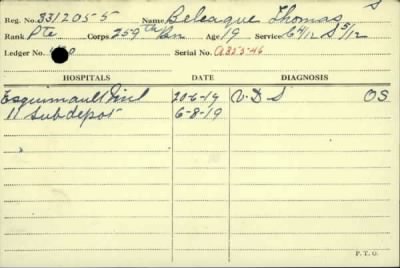 S
Reg. No. 331205-5 Name Beleague Thomas
Rank Pte Corps 259th Bn Age 19 Service C 4/12 S 5/12
Ledger No. Serial No. A355-46
HOSPITALS DATE DIAGNOSIS
Esquimault Mil 20-6-19 V.D.S OS
11 Sub depot 6-8-19
"
P. T. O.